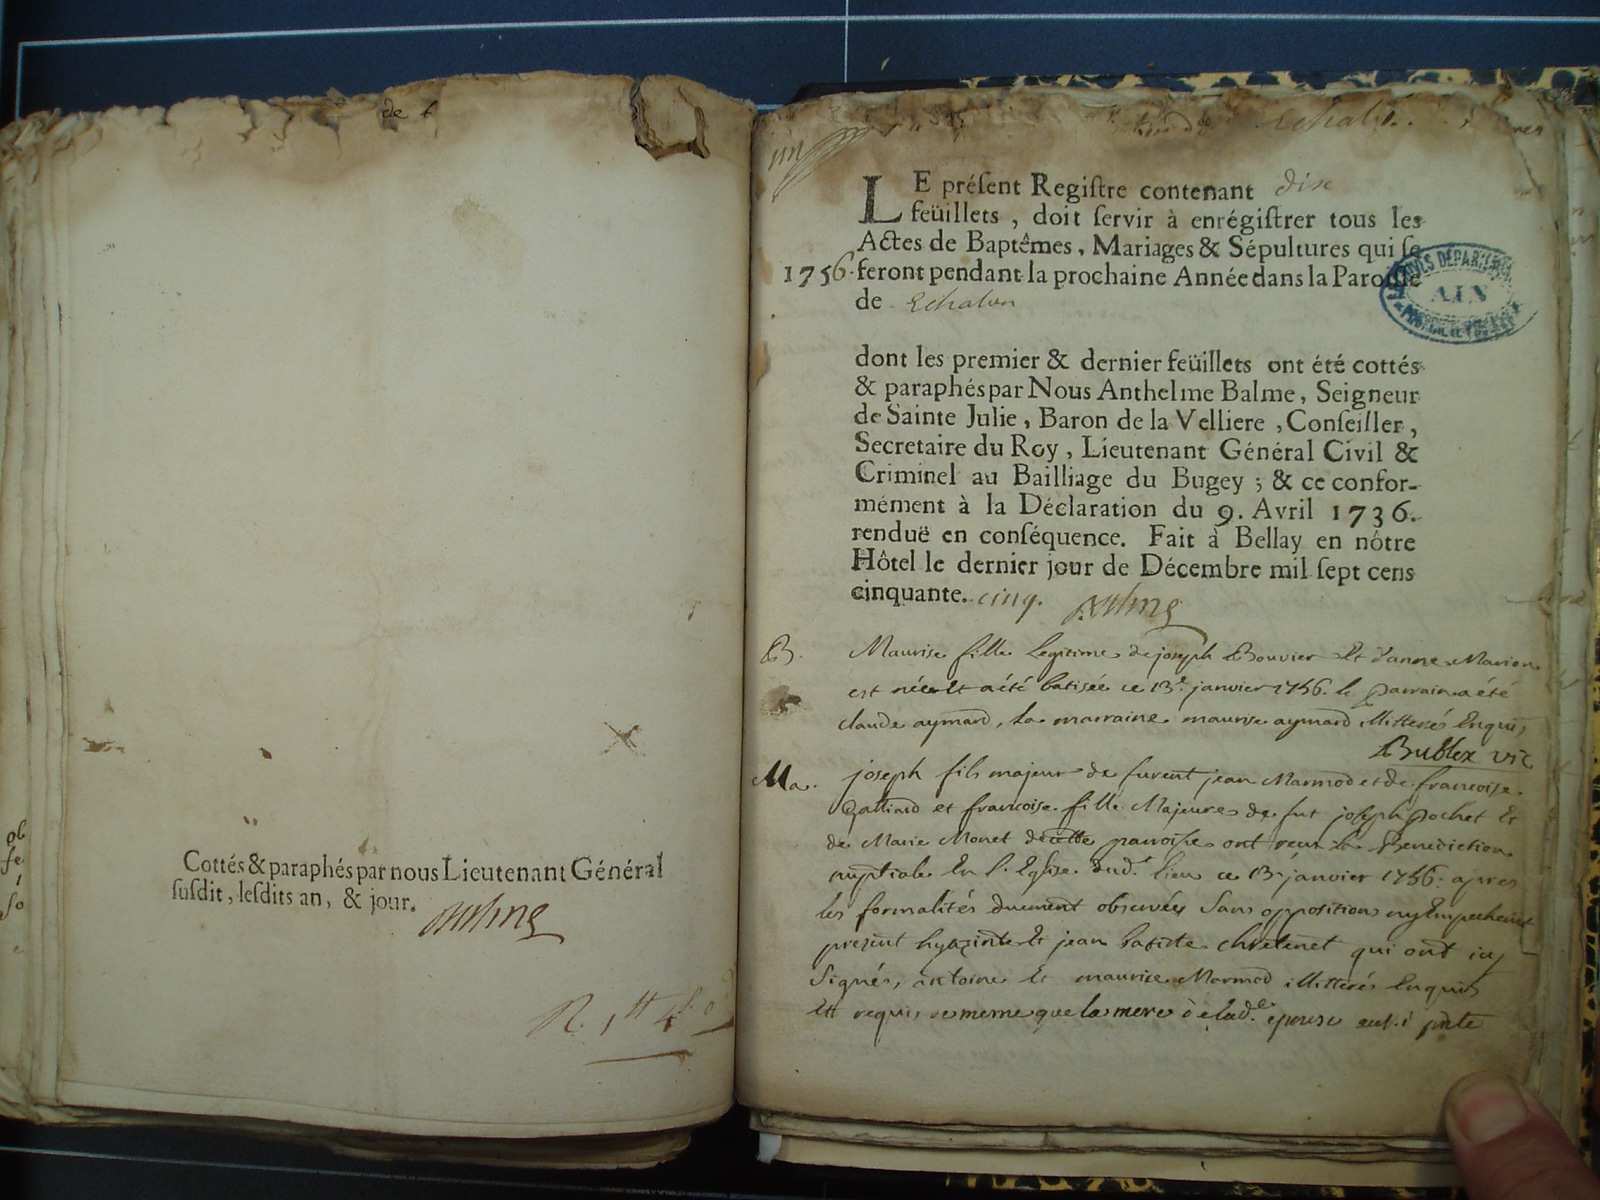 de
Cottés & paraphés par nous Lieutenant Général
susdit, lesdits an, & jour.
R. 1
Echalon
LE présent Registre contenant dix
feüillets, doit servir à enrégistrer tous les
Actes de Baptêmes, Mariages & Sépultures qui se
1756. feront pendant la prochaine Année dans la Paroisse
de Echalon
AIN
dont les premier & dernier feüillets ont été cottés
& paraphés par Nous Anthelme Balme, Seigneur
de Sainte Julie, Baron de la Velliere, Conseiller,
Secretaire du Roy, Lieutenant Général Civil &
Criminel au Bailliage du Bugey; & ce confor-
mément à la Déclaration du 9. Avril 1736.
renduë en conséquence. Fait à Bellay en nôtre
Hôtel le dernier jour de Décembre mil sept cens
cinquante. cinq.
B. Maurise fille legitime de joseph Bouvier et d'anne Marion
est née et a été batisée ce 13e janvier 1756. le parrain a été
claude aymard, la marraine maurise aymard illitterés enquis,
Bublex vic
Ma. joseph fils majeur de furent jean Marmod et de francoise
et francoise fille Majeure de fut joseph pochet et
de Marie Monet de cette parroisse ont recu la Benediction
nuptiale en l'Eglise dud. lieu ce 13 janvier 1756. apres
les formalités duement observées sans oppositions ny Empechement
present hyazinte et jean batiste chretenet qui ont icy
signés, antoine et maurice Marmod illitterés enquis
et requis de meme que la mere de lad.e epouse aussi pnte